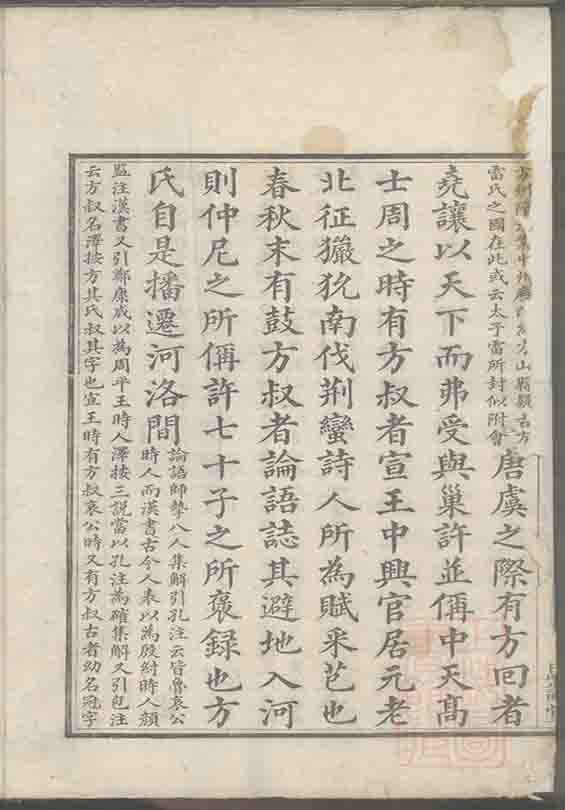 山縣類古方
雷氏之國在此或云太子雷所封似附會
唐虞之際有方回者
堯讓以天下而弗受與巢許並偁中天髙
士周之時有方叔者宣王中興官居元老
北征玁狁南伐荆蠻詩人所為賦采芑也
春秋末有鼓方叔者論語誌其避地入河
則仲尼之所偁許七十子之所褒録也方
氏自是播遷河洛間
論語師摯八人集解引孔注云皆魯哀公
時人而漢書古今人表以為殷紂時人顏
監注漢書又引鄭康成以為周平王時人澤按三說當以孔注為確集解又引包注
云方叔名澤按方其氏叔其字也宣王時有方叔哀公時又有方叔古者幼名冠字